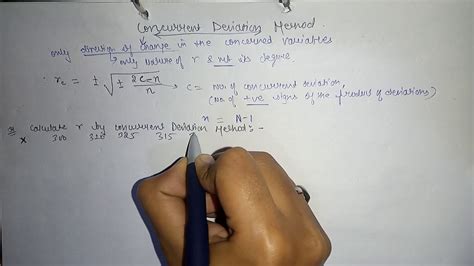 Concurrent Deviation Method.
only direction of change in the concerned variables
only nature of r & not its degree
rc = ± √ ± 2C-n / n
C = no. of concurrent deviation,
(no. of +ve signs of the product of deviations)
n = N-1
Calculate r by concurrent Deviation Method:-
x 300 325 315